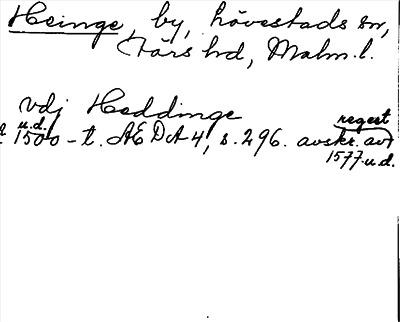 Heinge, by, Lövestads sn,
Färs hd, Malm. l.
vdj Heddinge
u.d. regest
1500-t. ÆDA 4, s. 296. avskr. av
1577 u.d.